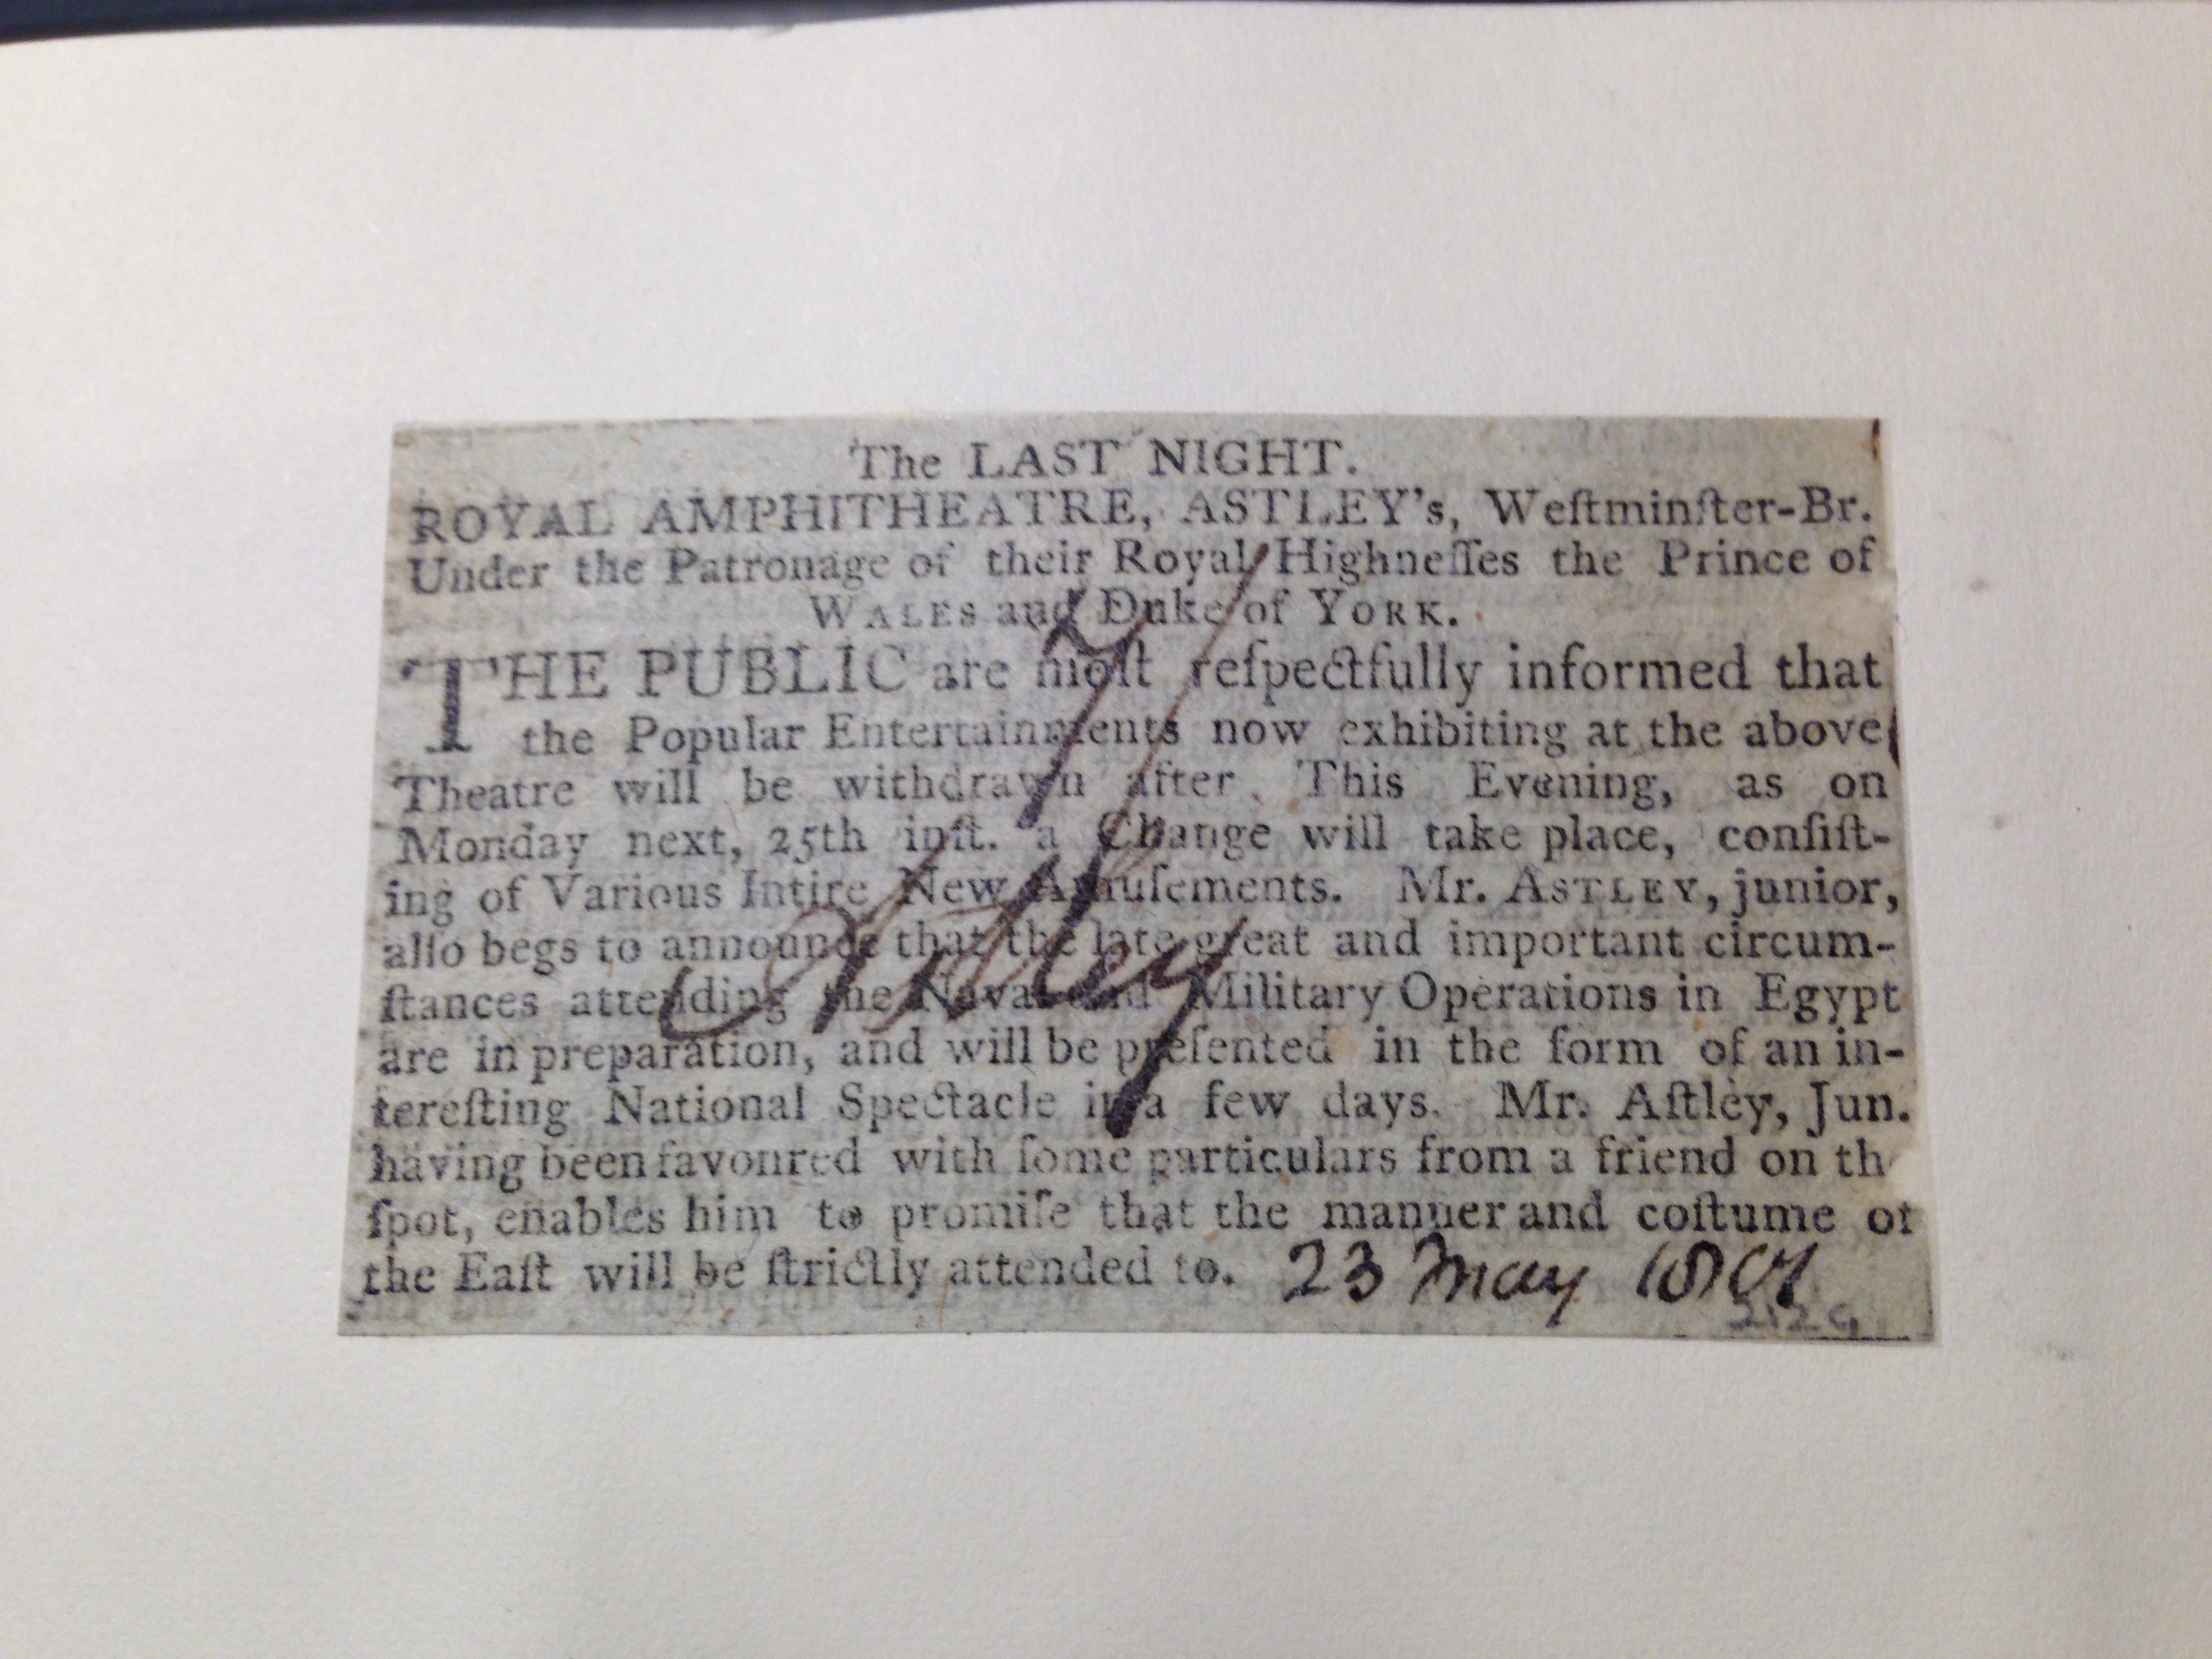 The LAST NIGHT.
ROYAL AMPHITHEATRE, ASTLEY's, Weſtminſter-Br.
Under the Patronage of their Royal Highneſſes the Prince of
WALES and Duke of YORK.
THE PUBLIC are moſt reſpectfully informed that
the Popular Entertainments now exhibiting at the above
Theatre will be withdrawn after This Evening, as on
Monday next, 25th inſt. a Change will take place, conſiſt-
ing of Various Intire New Amuſements. Mr. ASTLEY, junior,
alſo begs to announce that the late great and important circum-
ſtances attending the Naval and Military Operations in Egypt
are in preparation, and will be preſented in the form of an in-
tereſting National Spectacle in a few days. Mr. Aſtley, Jun.
having been favoured with ſome particulars from a friend on th
ſpot, enables him to promiſe that the manner and coſtume of
the Eaſt will be ſtrictly attended to. 23 May 1801
Astley